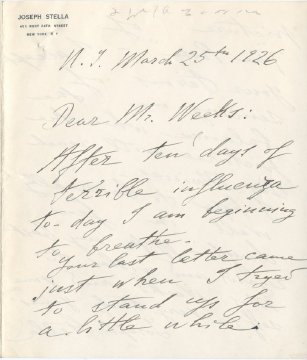 JOSEPH STELLA
NEW YORK N.Y.
N.Y. March 25th 1926
Dear Mr. Weeks:
After ten days of
terrible influenza
to-day I am beginning
to breathe.
Your last letter came
just when I tryed
to stand up for
a little while.